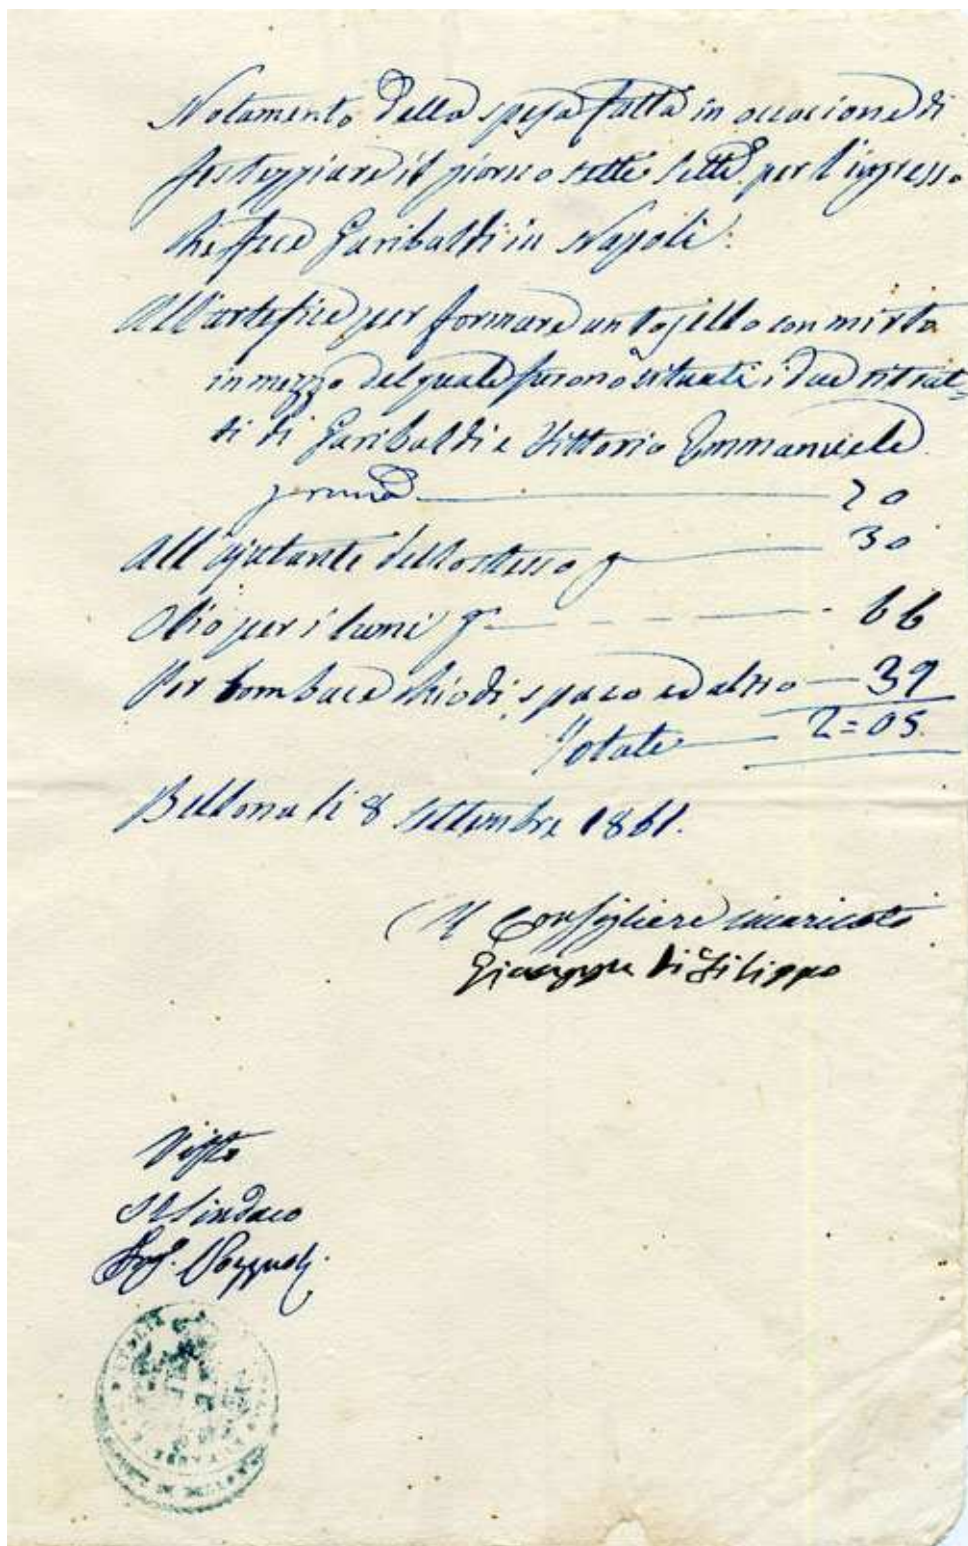 Notamento della spesa fatta in occasione di
festeggiare il giorno sette Sette per l'ingresso
che fece Garibaldi in Napoli:
All'artefice per formare un tosello con mirto
in mezzo del quale furono situati i due ritrat-
ti di Garibaldi e Vittorio Emmanuele
70
All'ajutante dello stesso g 30
Olio per i lumi g 66
Per bombace chiodi, spaco ed altro 39
Totale 2=05.
Bellona li 8 Settembre 1861.
Il Consigliere incaricato
Giuseppe di Filippo
Visto
Il Sindaco